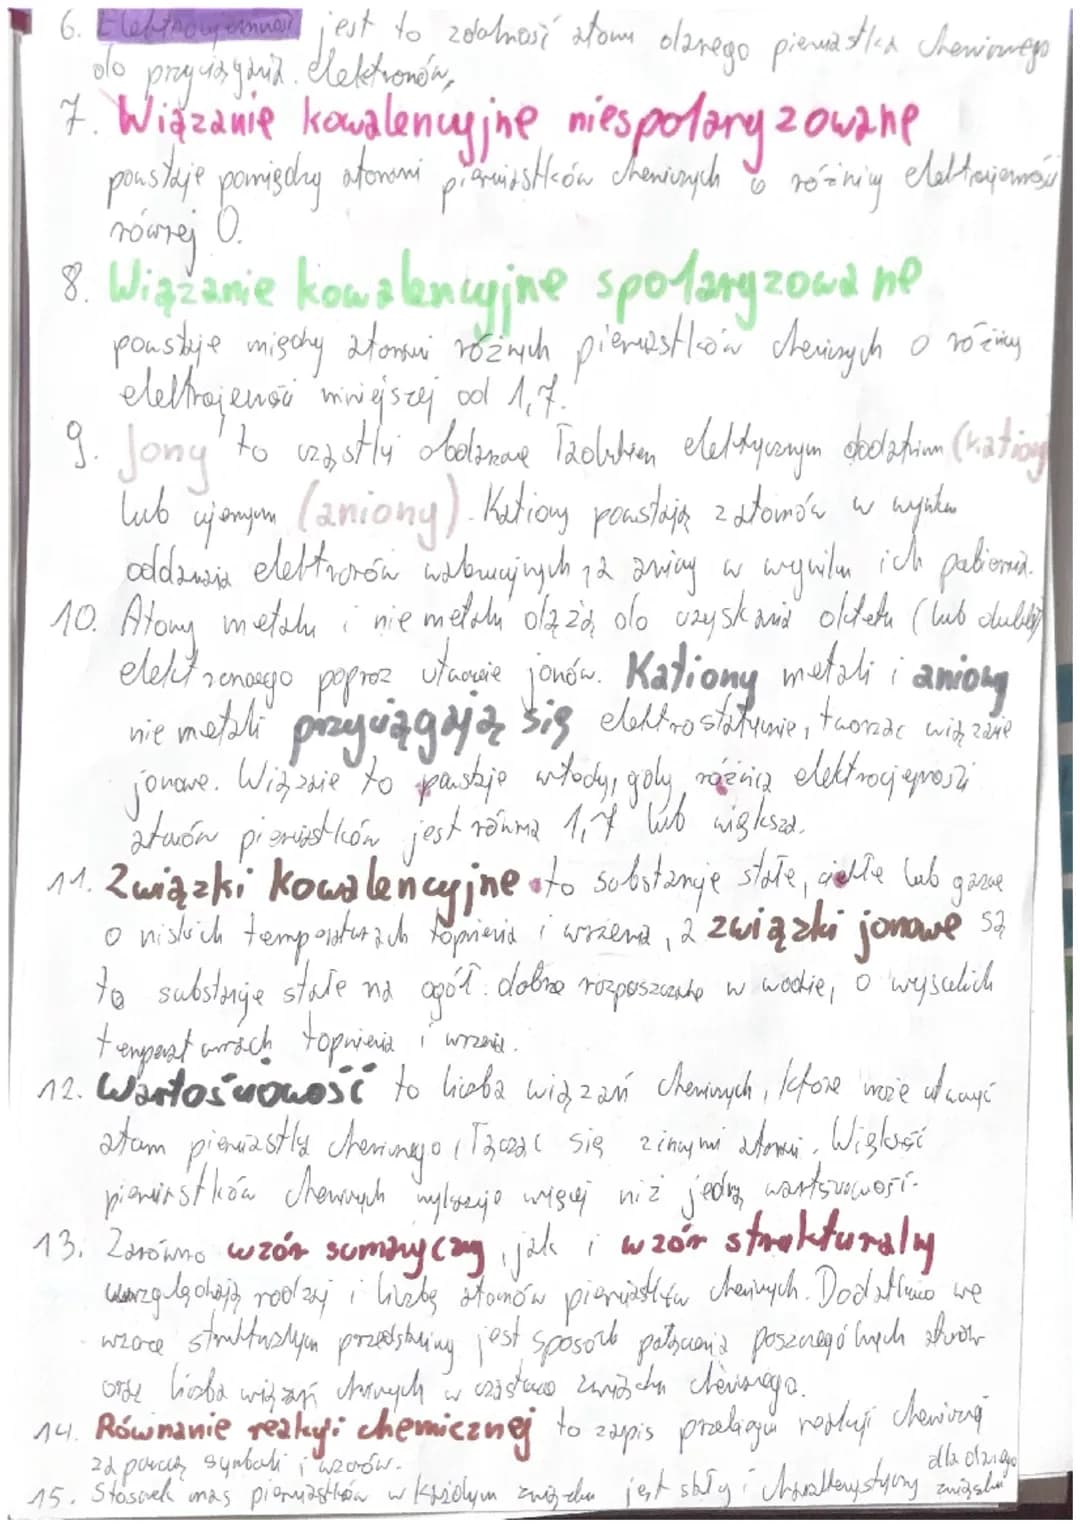 6. Elektroujemność jest to zdolność atomu danego pierwiastka chemicznego
do przyciągania elektronów.
7. Wiązanie kowalencyjne niespolaryzowane
powstaje pomiędzy atomami pierwiastków chemicznych o różnicy elektroujemności
równej 0.
8. Wiązanie kowalencyjne spolaryzowane
powstaje między atomami różnych pierwiastków chemicznych o różnicy
elektroujemności mniejszej od 1,7.
9. Jony to cząstki obdarzone ładunkiem elektrycznym dodatnim (kationy
lub ujemnym (aniony). Kationy powstają z atomów w wyniku
oddawania elektronów walencyjnych, a aniony w wyniku ich pobierania.
10. Atomy metalu i nie metalu dążą do uzyskania oktetu (lub dubletu)
elektronowego poprzez utworzenie jonów. Kationy metali i aniony
nie metali przyciągają się elektrostatycznie, tworząc wiązanie
jonowe. Wiązanie to powstaje wtedy, gdy różnica elektroujemności
atomów pierwiastków jest równa 1,7 lub większa.
11. Związki kowalencyjne to substancje stałe, ciekłe lub gazowe
o niskich temperaturach topnienia i wrzenia, a związki jonowe są
to substancje stałe na ogół dobrze rozpuszczalne w wodzie, o wysokich
temperaturach topnienia i wrzenia.
12. Wartościowość to liczba wiązań chemicznych, które może utworzyć
atom pierwiastka chemicznego, łącząc się z innymi atomami. Większość
pierwiastków chemicznych wykazuje więcej niż jedną wartościowość.
13. Zarówno wzór sumaryczny, jak i wzór strukturalny
uwzględniają rodzaj i liczbę atomów pierwiastków chemicznych. Dodatkowo we
wzorze strukturalnym przedstawiony jest sposób połączenia poszczególnych atomów
oraz liczba wiązań chemicznych w cząsteczce związku chemicznego.
14. Równanie reakcji chemicznej to zapis przebiegu reakcji chemicznej
za pomocą symboli i wzorów.
15. Stosunek mas pierwiastków w każdym związku jest stały i charakterystyczny dla danego
związku